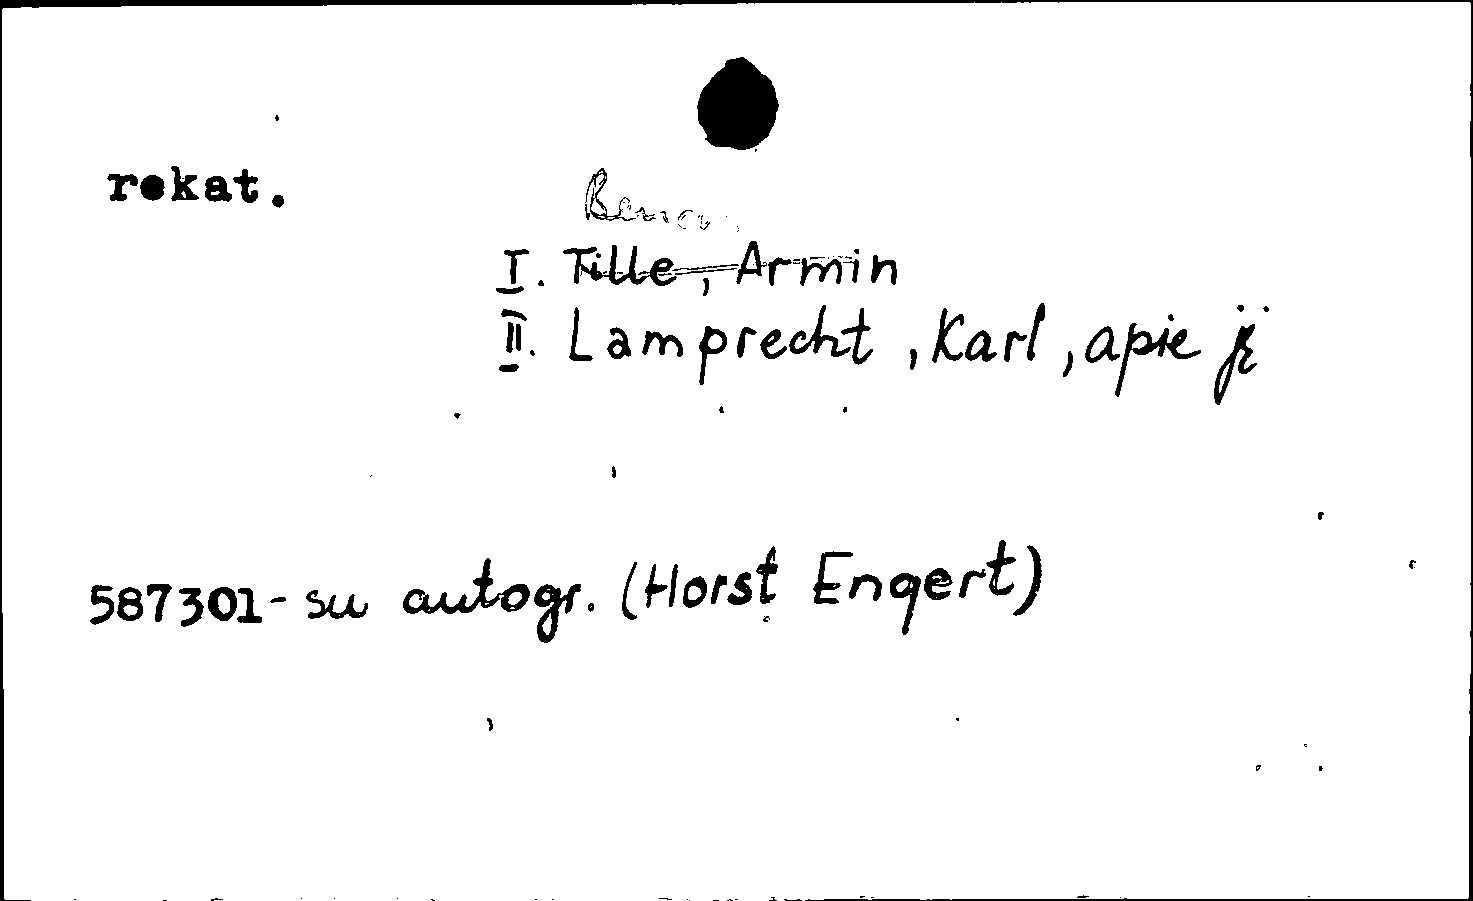 rekat.
I. Tille, Armin
II. Lamprecht, Karl, apie jį
587301-su autogr. (Horst Engert)